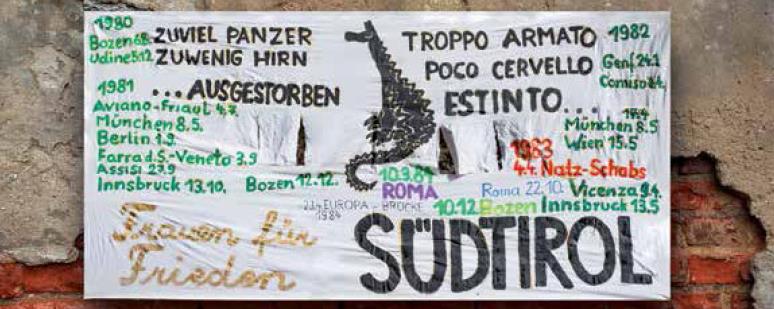 1980
Bozen 6.8.
Udine 5.12
ZUVIEL PANZER
ZUWENIG HIRN
1981
...AUSGESTORBEN
Aviano-Friaul 4.7.
München 8.5.
Berlin 1.9.
Farra d.S.-Veneto 3.9
Assisi 27.9
Innsbruck 13.10.
Bozen 12.12.
TROPPO ARMATO
POCO CERVELLO
ESTINTO...
1982
Genf 24.1
Comiso
München 8.5
Wien 15.5
1983
4.4. Natz-Schabs
10.9.81
ROMA
Roma 22.10.
Vicenza 9.4.
EUROPA-BRÜCKE
1984
10.12 Bozen
Innsbruck 13.5
Frauen für
Frieden
SÜDTIROL